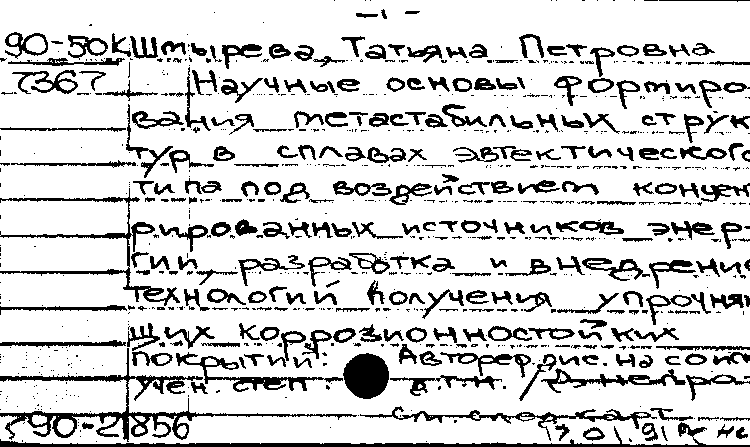 — 1 —
90-50К Штырева, Татьяна Петровна
7367 Научные основы формиро
вания метастабильных струк
тур в сплавах эвтектического
типа под воздействием концен
рированных источников энер-
гии, разработка и внедрение
технологий получения упрочня
щих коррозионностойких
покрытий: Автореф. дис. на соис
учен. степ. д.т.н. /
см. след. карт
90-21856 17.01.91